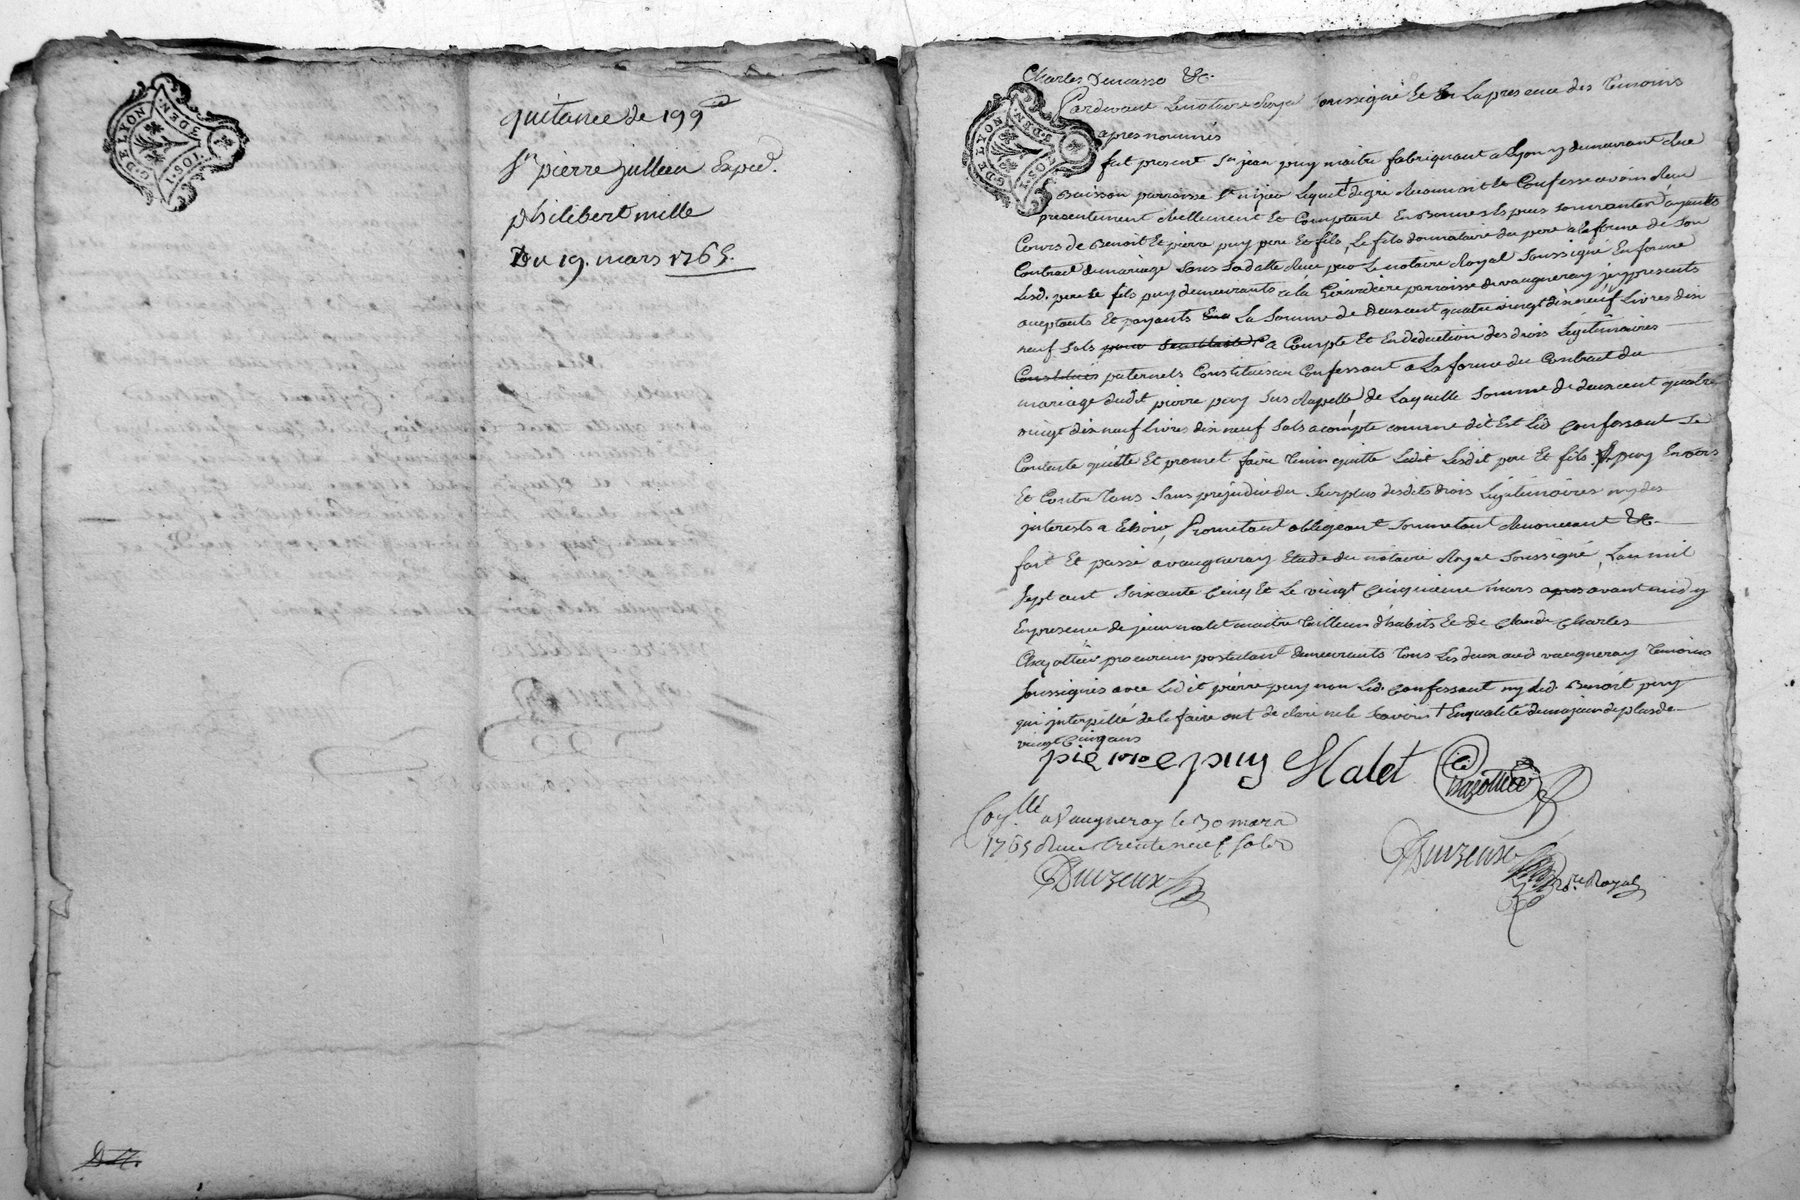 G. DE LYON
3 DEN.
1 SOL
quitance de 199
Sr pierre jullien Exped.
philibert mille
Du 19. mars 1765.
Charles Ducasse &c.
Pardevant Le notaire Royal soussigné Et En La presence des Temoins
apres nommés
G. DE LYON
fut present Sr jean puy maitre fabriquant a Lyon y demeurant Rue
Buisson parroisse St nizier Lequel † degré Reconnoit Et Confesse avoir Receu
presentement Reellement Et Comptent En Bonnes Especes sonnantes ayants
Cours de Benoit Et pierre puy pere Et fils, Le fils donnataire du pere a la forme de Son
Contract de mariage Sous Sa datte Receu par Le notaire Royal Soussigné En forme
Lesd. pere Et fils puy demeurants a la Girardiere parroisse de vaugneray jcy presents
aceptants Et payants La Somme de Deux cent quatre vingt dix neuf Livres dix
neuf Sols a Compte Et En deduction des droits Legitimaires
Constitués paternels Constitués au Confessant a La forme du Contract du
mariage dudit pierre puy Sus Rapellé de Laquelle Somme de deux cent quatre
vingt dix neuf Livres dix neuf Sols a compte comme dit Est Led. Confessant Se
Contente quitte Et promet faire Tenir quitte Lesdit pere Et fils puy Envers
Et Contre Tous Sans prejudice du Surplus desdits droits Legitimaires ny des
interests a Echoir, Promettant obligeant Soumettant Renonceant &c.
fait Et passé a vaugneray Etude du notaire Royal Soussigné, L'an mil
Sept cent Soixante Cinq Et Le vingt Cinquieme mars apres avant midy
En presence de jean malet maitre Tailleur d'habits Et de Claude Charles
Chazottier procureur postulant demeurants Tous Les deux aud. vaugneray Temoins
Soussignés avec Ledit pierre puy non Led. Confessant ny Led. Benoit puy
qui interpellé de le faire ont declaré ne le Scavoir † En qualité de majeur de plus de
vingt Cinq ans
pierre puy Malet Chazottier
Con.lé a Vaugneray le 30 mars
1765 Receu trente neuf sols
Duvzeux
Duvzeux
Nore. Royal